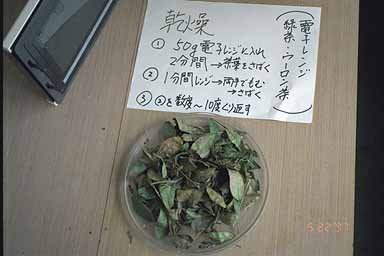 乾燥
① 50g電子レンジに入れ
2分間→茶葉をさばく
② 1分間レンジ→両手でもむ
→さばく
③ ②を数度～10度くり返す
(電子レンジ
緑茶・ウーロン茶)
5 22 '97